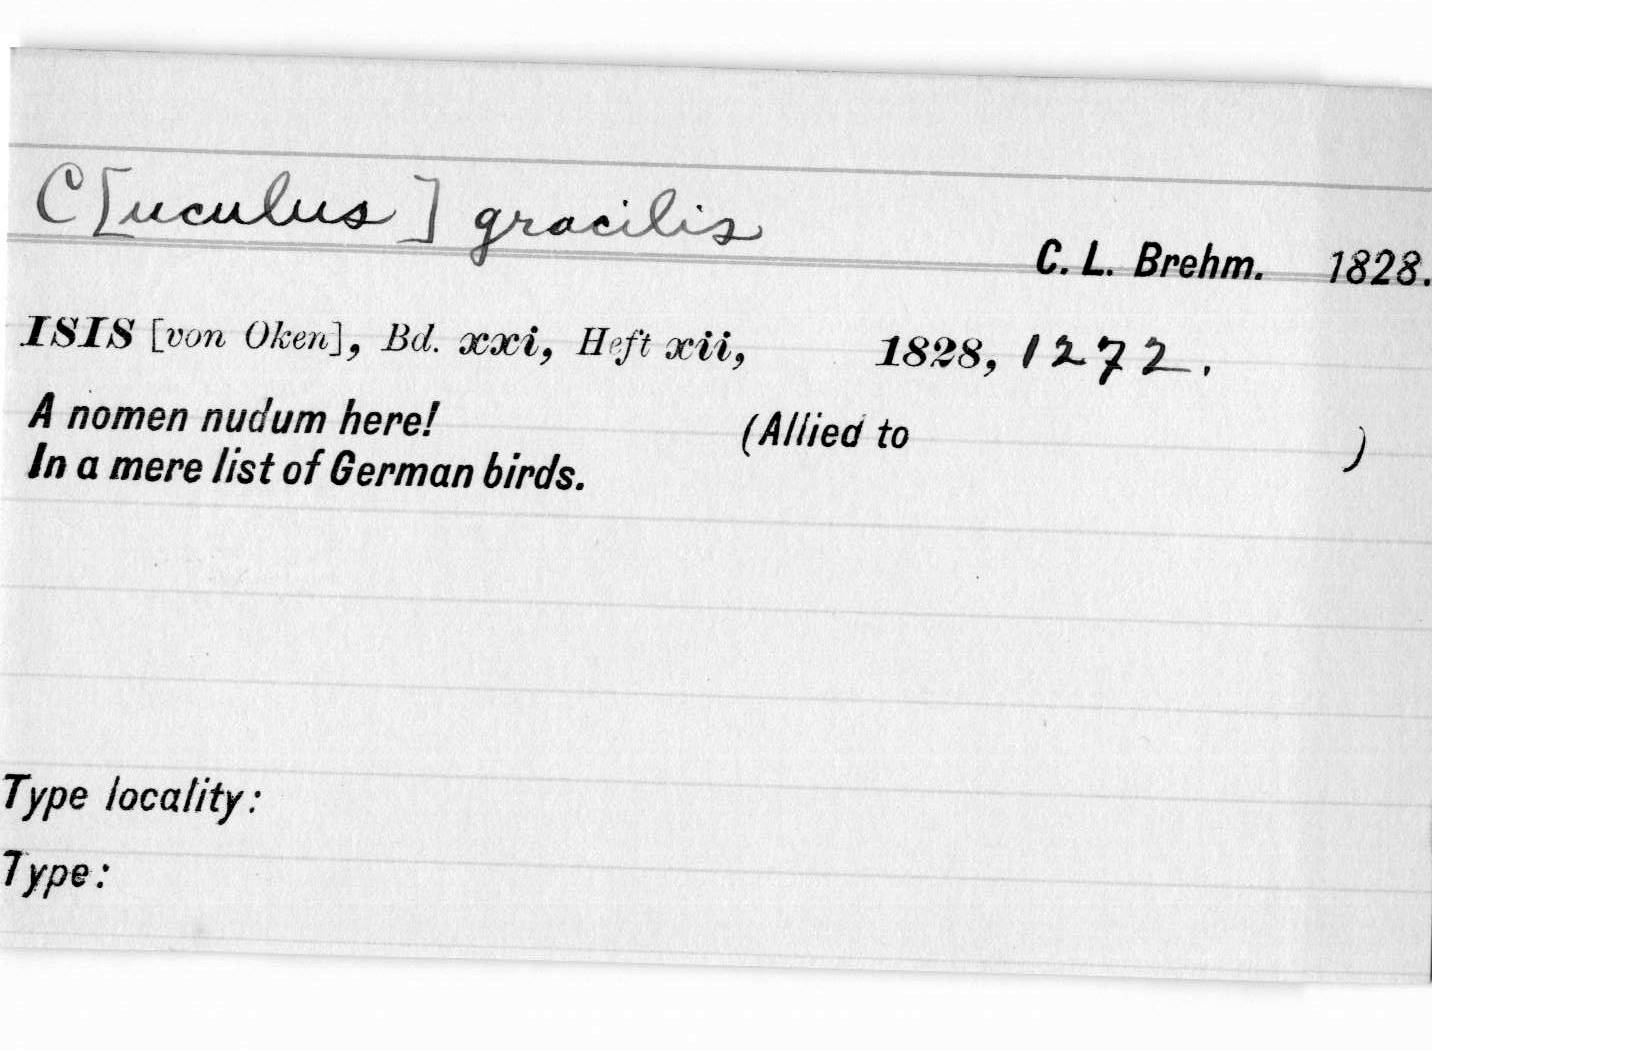 C[uculus] gracilis
C. L. Brehm. 1828.
ISIS [von Oken], Bd. xxi, Heft xii, 1828, 1272.
A nomen nudum here! (Allied to )
In a mere list of German birds.
Type locality:
Type: